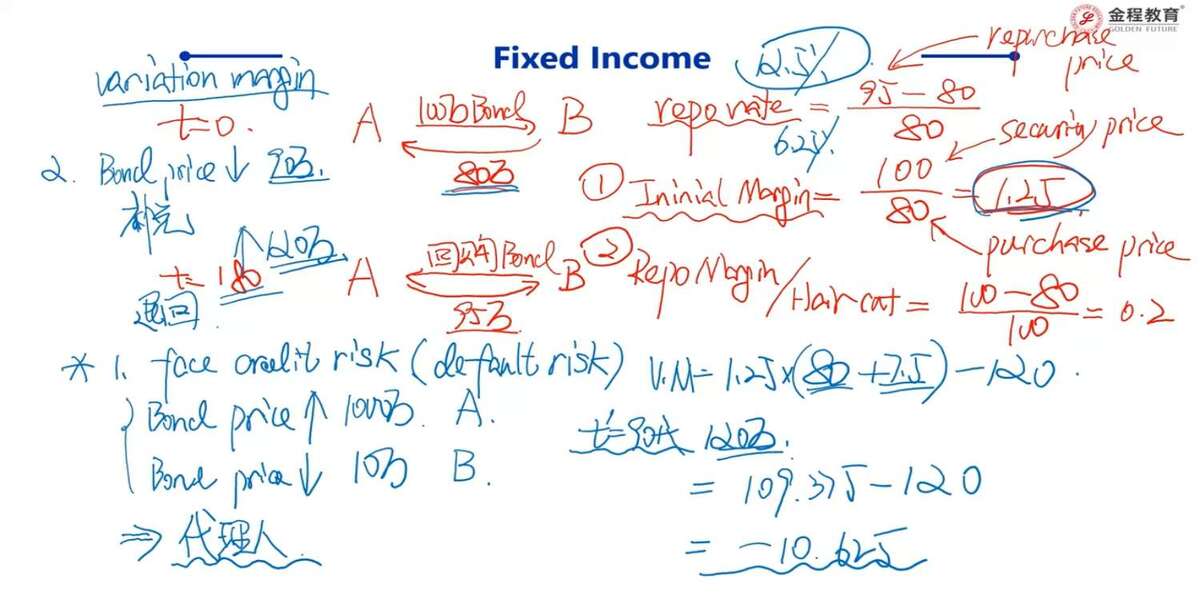 金程教育®
GOLDEN FUTURE
Fixed Income
variation margin
t=0.
A 100万Bond B
80万
repo rate = 95-80 / 80
12.5%
6.25%
repurchase price
2. Bond price ↓ 90万.
补充
↑ 120万
退回
① Ininial Margin = 100 / 80 = 1.25
security price
purchase price
t=180 A 回购Bond B
95万
② Repo Margin / Hair cut = 100-80 / 100 = 0.2
* 1. face credit risk (default risk)
Bond price ↑ 1000万 A.
Bond price ↓ 10万 B.
⇒ 代理人
V.M = 1.25×(80+7.5)-120.
t=90天 120万.
= 109.375-120
= -10.625